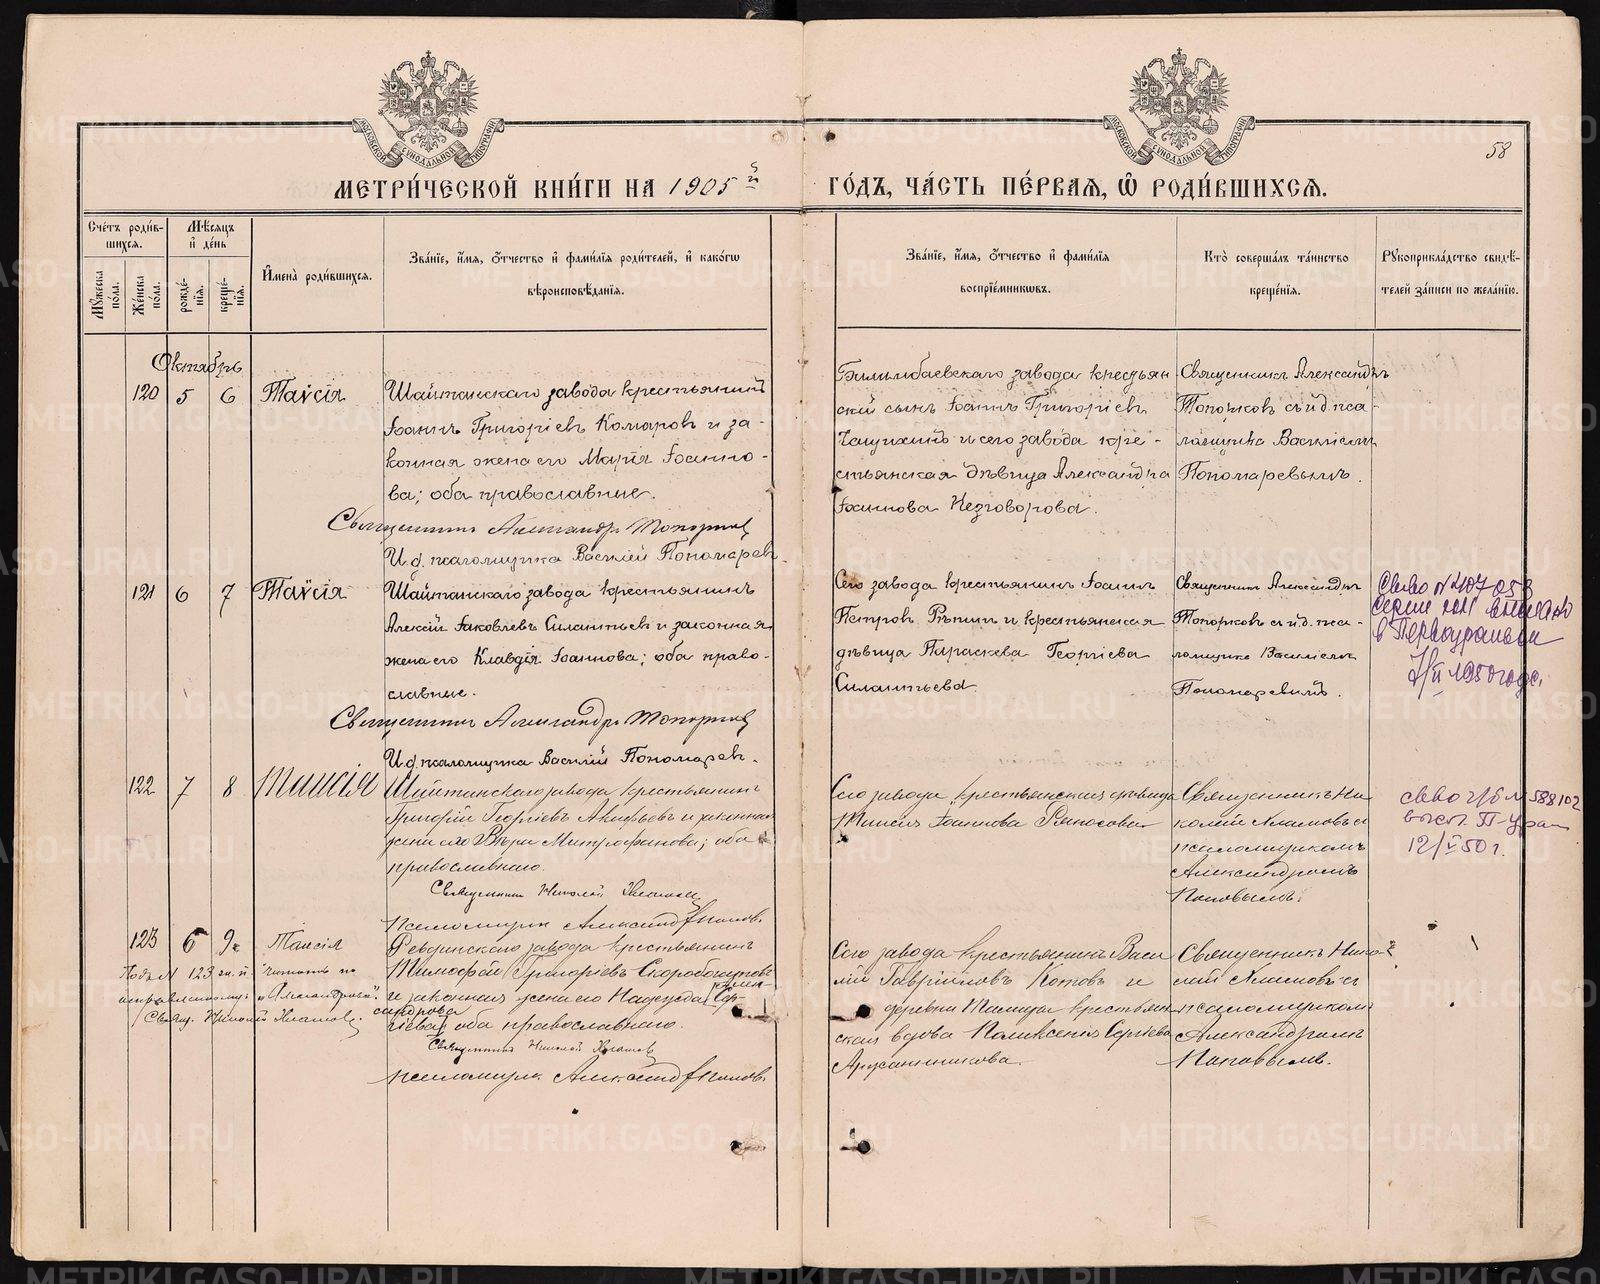 МОСКОВСКОЙ СѴНОДАЛЬНОЙ ТИПОГРАФІИ
МОСКОВСКОЙ СѴНОДАЛЬНОЙ ТИПОГРАФІИ
58
МЕТРИ́ЧЕСКОЙ КНИ́ГИ НА 1905й ГО́ДЪ, ЧА́СТЬ ПЕ́РВАѦ, Ѽ РОДИ́ВШИХСѦ.
Сче́тъ роди́в-
шихсѧ.
Мꙋ́жеска по́ла.
Же́нска по́ла.
Мѣ́сѧцъ
и҆ де́нь
рожде́-
нїѧ.
креще́-
нїѧ.
И҆мена̀ роди́вшихсѧ.
Зва́нїе, и҆́мѧ, ѻ҆́тчество и҆ фами́лїѧ роди́телей, и҆ како́гѡ
вѣроисповѣ́данїѧ.
Зва́нїе, и҆́мѧ, ѻ҆́тчество и҆ фами́лїѧ
воспрїе́мникѡвъ.
Кто̀ соверша́лъ та́инство
креще́нїѧ.
Рꙋкоприкла́дство свидѣ́-
телей за́писи по жела́нїю.
Октябрь
120 5 6 Таисія
Шайтанскаго завода крестьянинъ
Іоаннъ Григоріевъ Комаровъ и за-
конная жена его Марія Іоанно-
ва; оба православные.
Священникъ Александръ Топорковъ
И. д. псаломщика Василій Пономаревъ
Билимбаевскаго завода крестьян
скій сынъ Іоаннъ Григоріевъ
Чащихинъ и сего завода кре-
стьянская дѣвица Александра
Іоаннова Незговорова.
Священникъ Александръ
Топорковъ съ и д пса-
ломщика Василіемъ
Пономаревымъ.
121 6 7 Таисія
Шайтанскаго завода крестьянинъ
Алексій Іаковлевъ Силантьевъ и законная
жена его Клавдія Іоаннова; оба право-
славные.
Священникъ Александръ Топорковъ
И. д. псаломщика Василій Пономаревъ.
Сего завода крестьянинъ Іоаннъ
Петровъ Рѣпинъ и крестьянская
дѣвица Параскева Георгіева
Силантьева.
Священникъ Александръ
Топорковъ съ и. д. пса-
ломщика Василіемъ
Пономаревымъ.
в Первоуральск
1950 года.
122 7 8 Таисія
Шайтанскаго завода крестьянинъ
Григорій Георгіевъ Акифьевъ и законная
жена его Вѣра Митрофанова; оба
православнаго.
Священникъ Николай Хламовъ
Псаломщикъ Александръ Поповъ.
Сего завода крестьянская дѣвица
Таисія Іоаннова Ряпосова
Священникъ Ни-
колай Хламовъ съ
псаломщикомъ
Александромъ
Поповымъ.
588102
12/V 50 г.
123 6 9 Таисія
Подъ № 123 читать по
исправленному: "Александрова".
Свящ. Николай Хламовъ.
Ревдинскаго завода крестьянинъ
Тимофей Григоріевъ Скоробогатовъ
и законная жена его Надежда
оба православнаго.
Священникъ Николай Хламовъ
Псаломщикъ Александръ Поповъ.
Сего завода крестьянинъ Васи
лій Гавріиловъ Котовъ и
деревни Талицы крестьян
ская вдова Поликсенія Сергіева
Священникъ Нико
лай Хламовъ съ
псаломщикомъ
Александромъ
Поповымъ.
METRIKI.GASO-URAL.RU